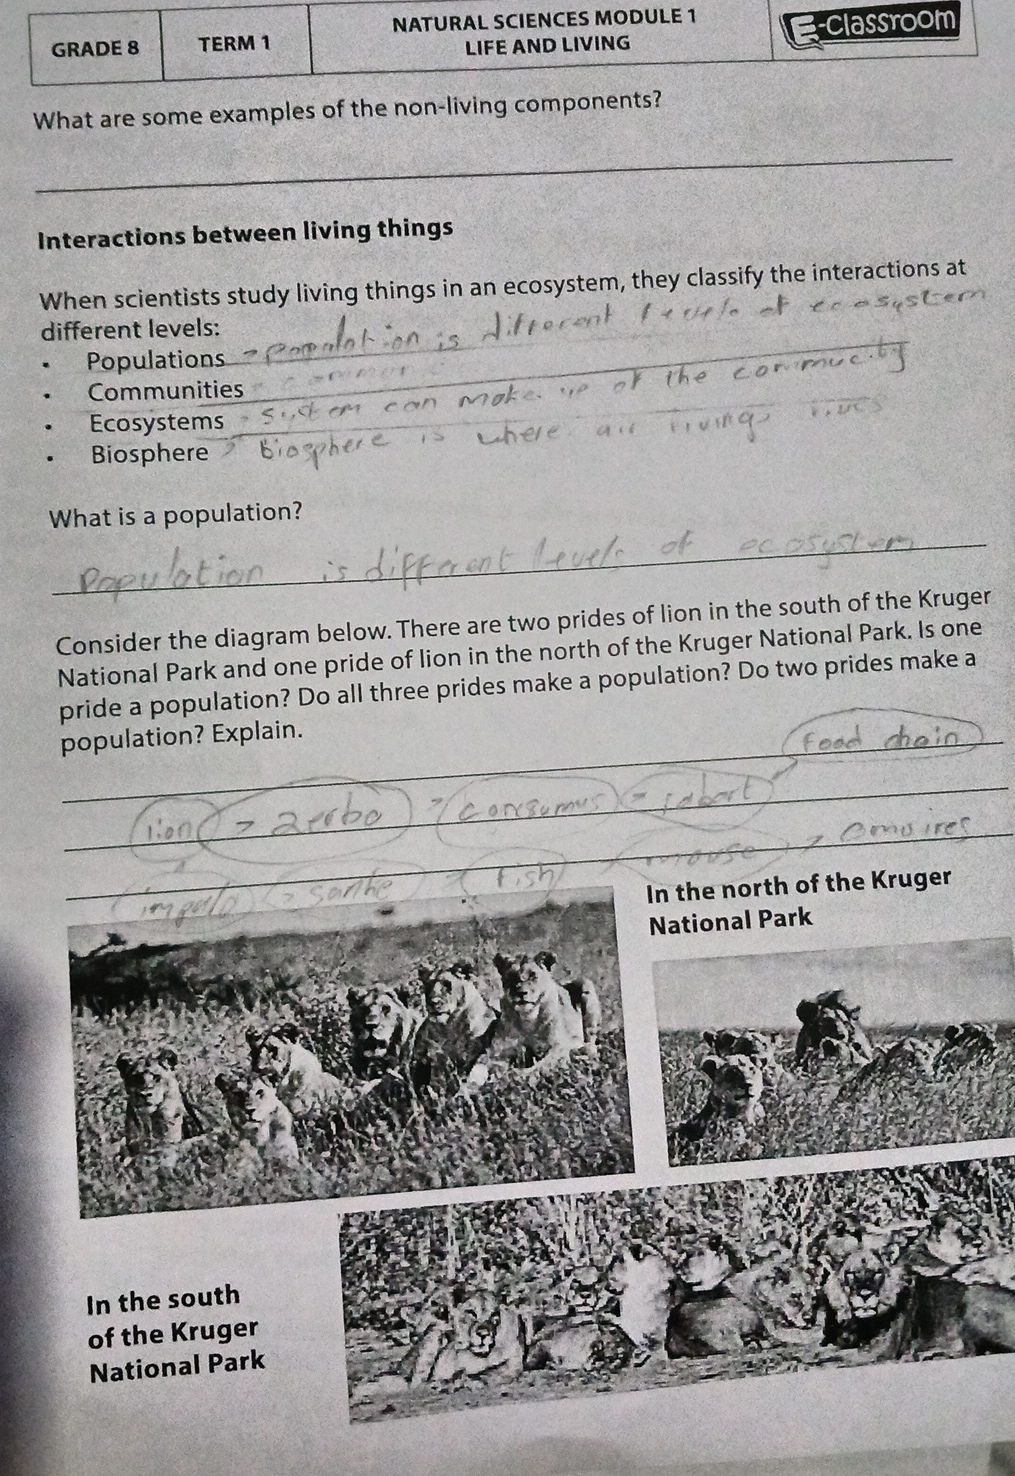 GRADE 8
TERM 1
NATURAL SCIENCES MODULE 1
LIFE AND LIVING
E-Classroom
What are some examples of the non-living components?
Interactions between living things
When scientists study living things in an ecosystem, they classify the interactions at
different levels:
• Populations - population is different levels of ecosystem
• Communities
• Ecosystems - system can make up of the community
• Biosphere - Biosphere is where all living
What is a population?
Population is different levels of ecosystem
Consider the diagram below. There are two prides of lion in the south of the Kruger
National Park and one pride of lion in the north of the Kruger National Park. Is one
pride a population? Do all three prides make a population? Do two prides make a
population? Explain.
food chain
lion
fish mouse
In the north of the Kruger
National Park
In the south
of the Kruger
National Park